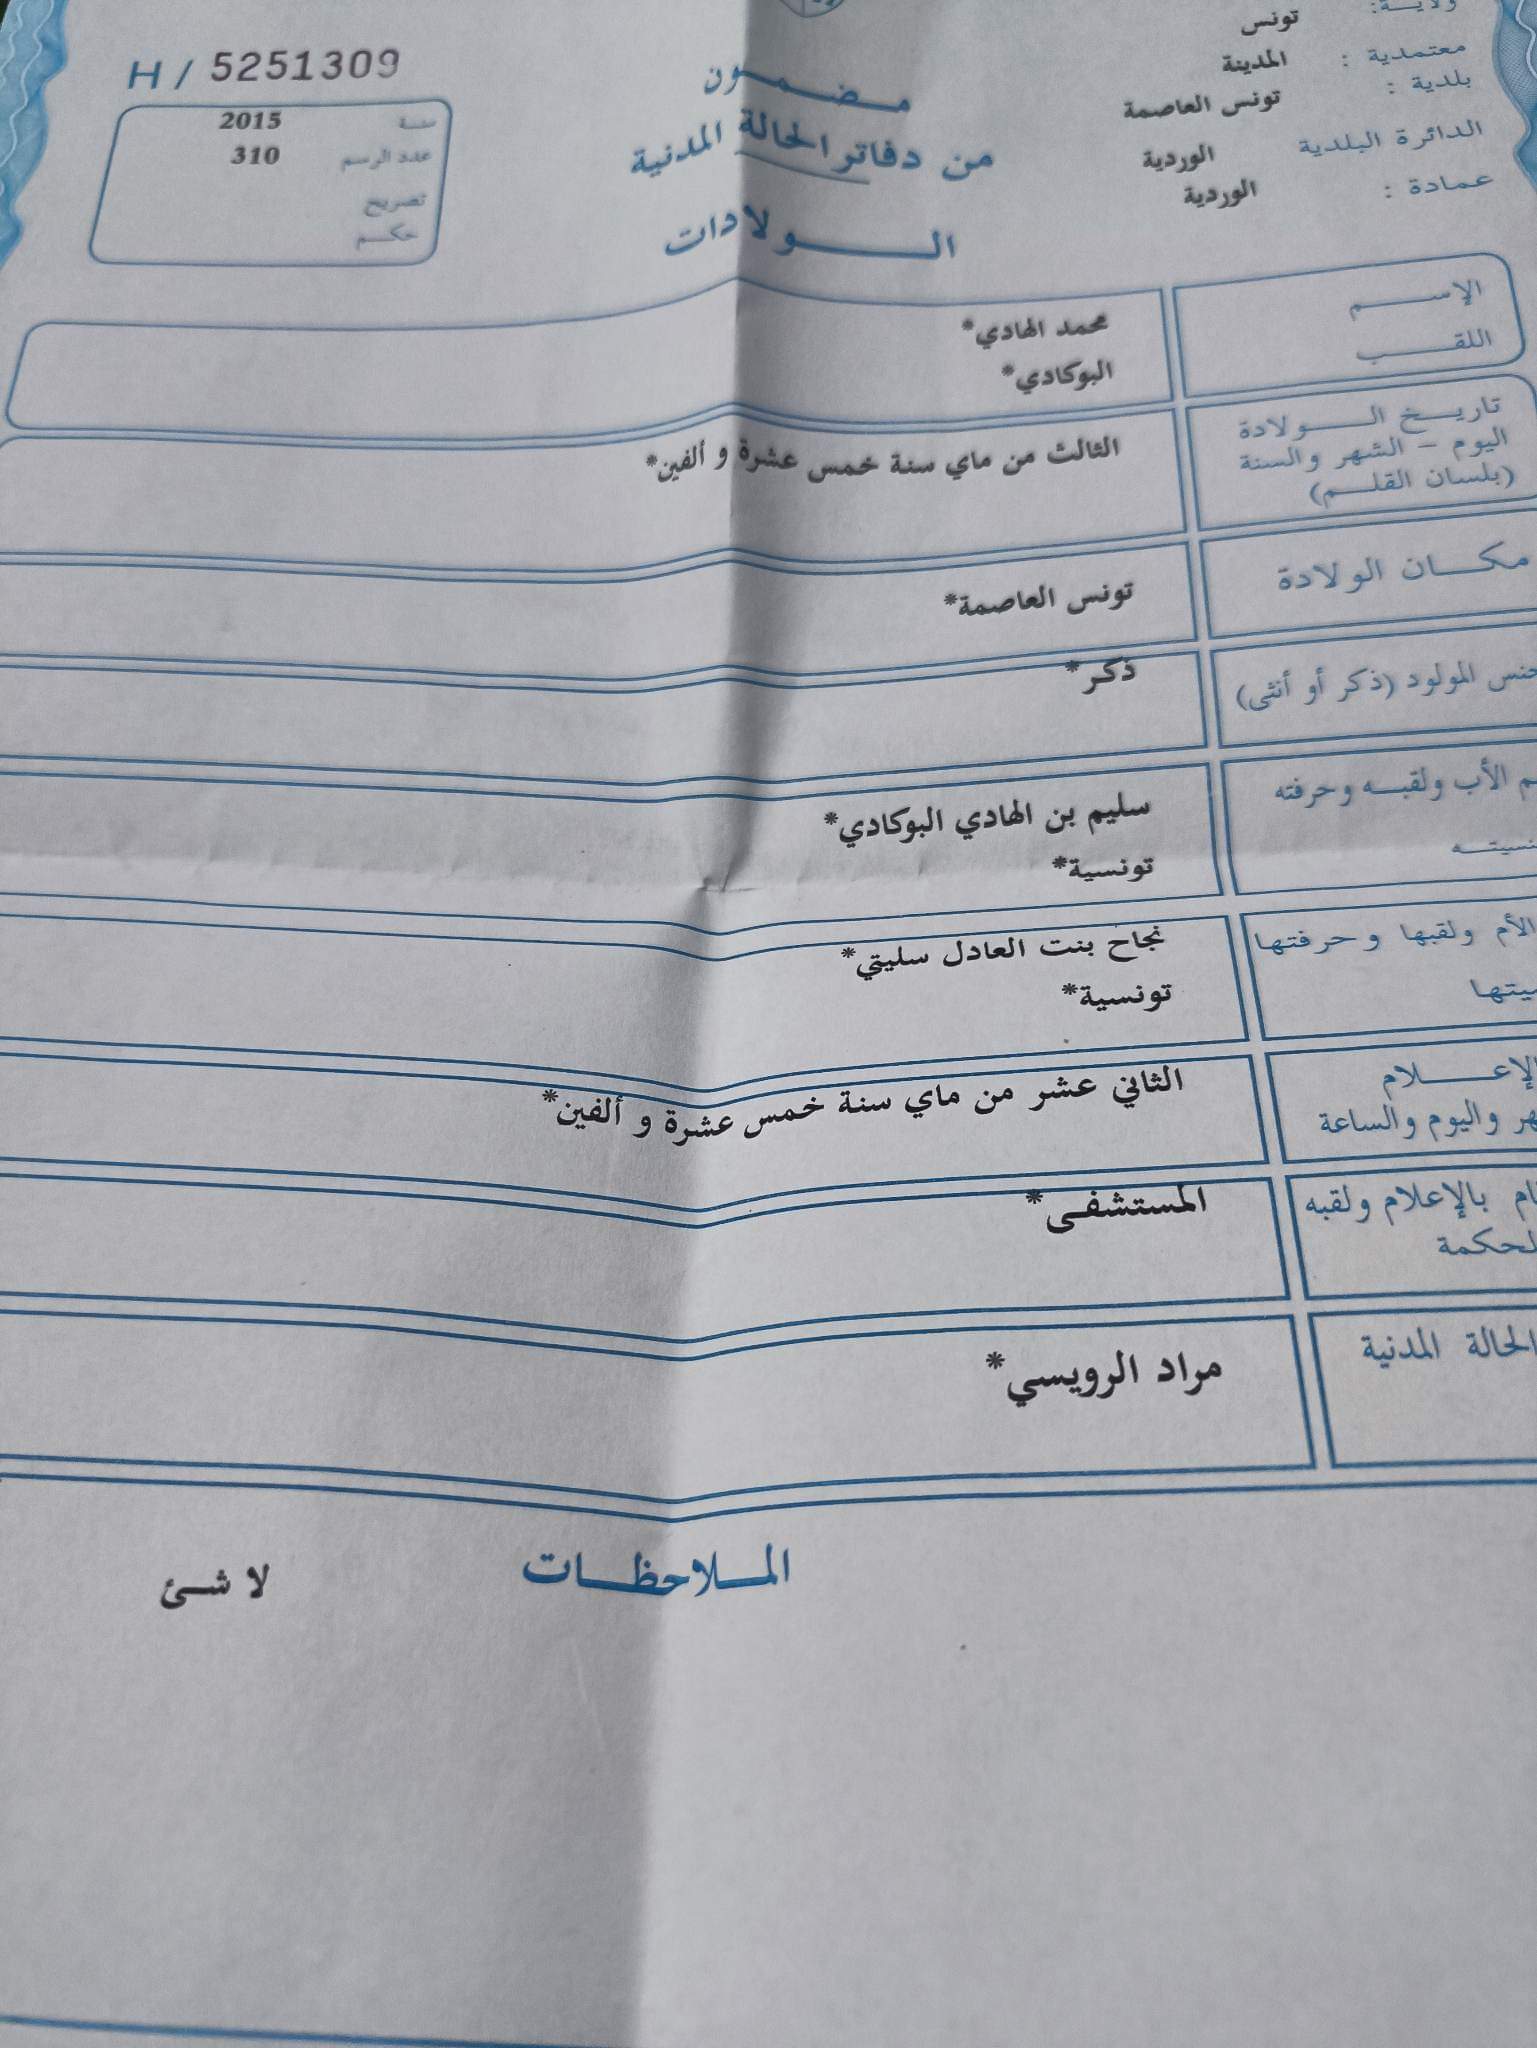 ولايـــة: تونس
معتمدية : المدينة
بلدية : تونس العاصمة
الدائرة البلدية الوردية
عمادة : الوردية
مـــضـــمـــون
من دفاتر الحالة المدنية
الـــــولادات
H / 5251309
سنـــة 2015
عدد الرسم 310
تصريح
حكـــم
الإســـــم محمد الهادي*
اللقـــــب البوكادي*
تاريـــخ الـــــولادة
اليوم – الشهر والسنة
(بلسان القلـــم)
الثالث من ماي سنة خمس عشرة و ألفين*
مكـــان الولادة تونس العاصمة*
جنس المولود (ذكر أو أنثى) ذكر*
الأب ولقبـــه وحرفته سليم بن الهادي البوكادي*
تونسية*
الأم ولقبها وحرفتها نجاح بنت العادل سليتي*
تونسية*
الإعـــــلام
واليوم والساعة
الثاني عشر من ماي سنة خمس عشرة و ألفين*
بالإعلام ولقبه المستشفـــى*
الحالة المدنية مراد الرويسي*
المـــلاحظـــات
لا شـــئ